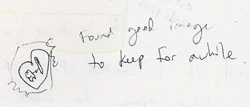 found good image
to keep for awhile.